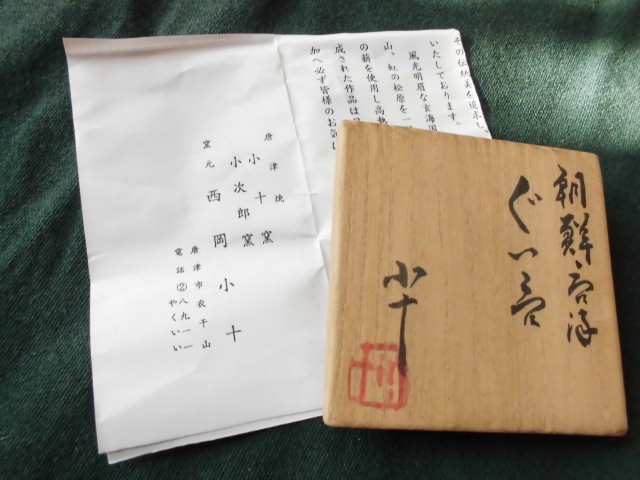 その伝統美を追求し、
いたしております。
風光明眉な玄海国
山、虹の松原を一
の薪を使用し高熱
成された作品は
加へ必ず皆様のお気に
唐津焼
小十窯
小次郎窯
窯元 西岡小十
唐津市衣干山
電話②八九一一
やくいい
朝鮮唐津
ぐい呑
小十